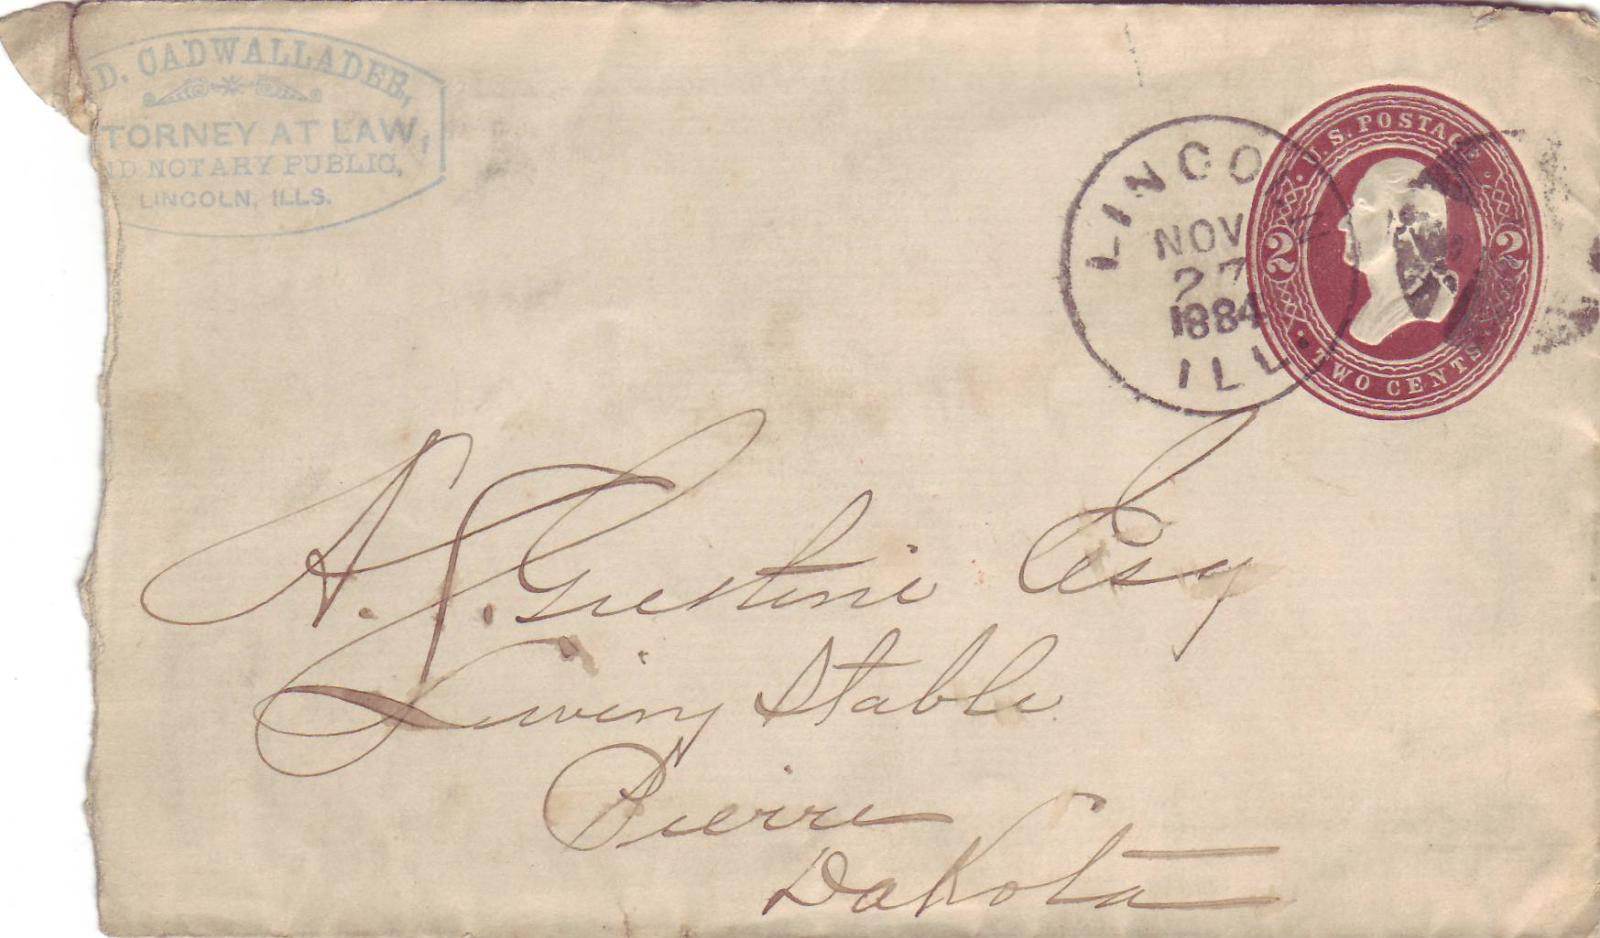 D. CADWALLADER,
TORNEY AT LAW,
ND NOTARY PUBLIC,
LINCOLN, ILLS.
LINCOLN
NOV
27
1884
ILL.
U.S. POSTAGE
2 2
TWO CENTS
A. J. Giestini Esq
Livery Stable
Pierre
Dakota